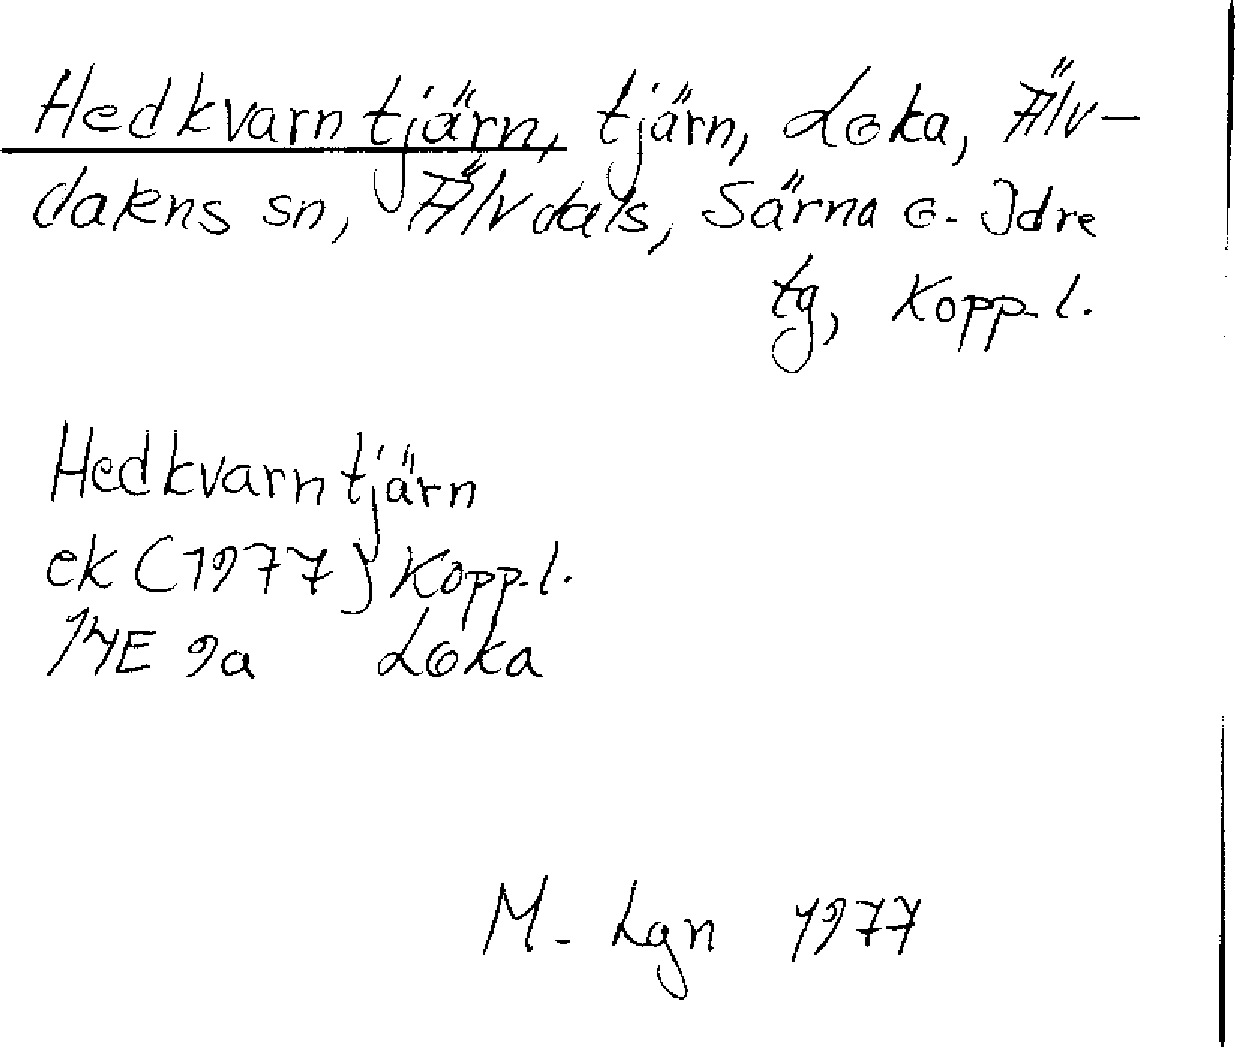 Hedkvarntjärn, tjärn, Loka, Älv-
dalens sn, Älvdals, Särna o. Idre
tg, Kopp. l.
Hedkvarntjärn
ek (1977) Kopp. l.
14E 9a Loka
M. Lgn 1977